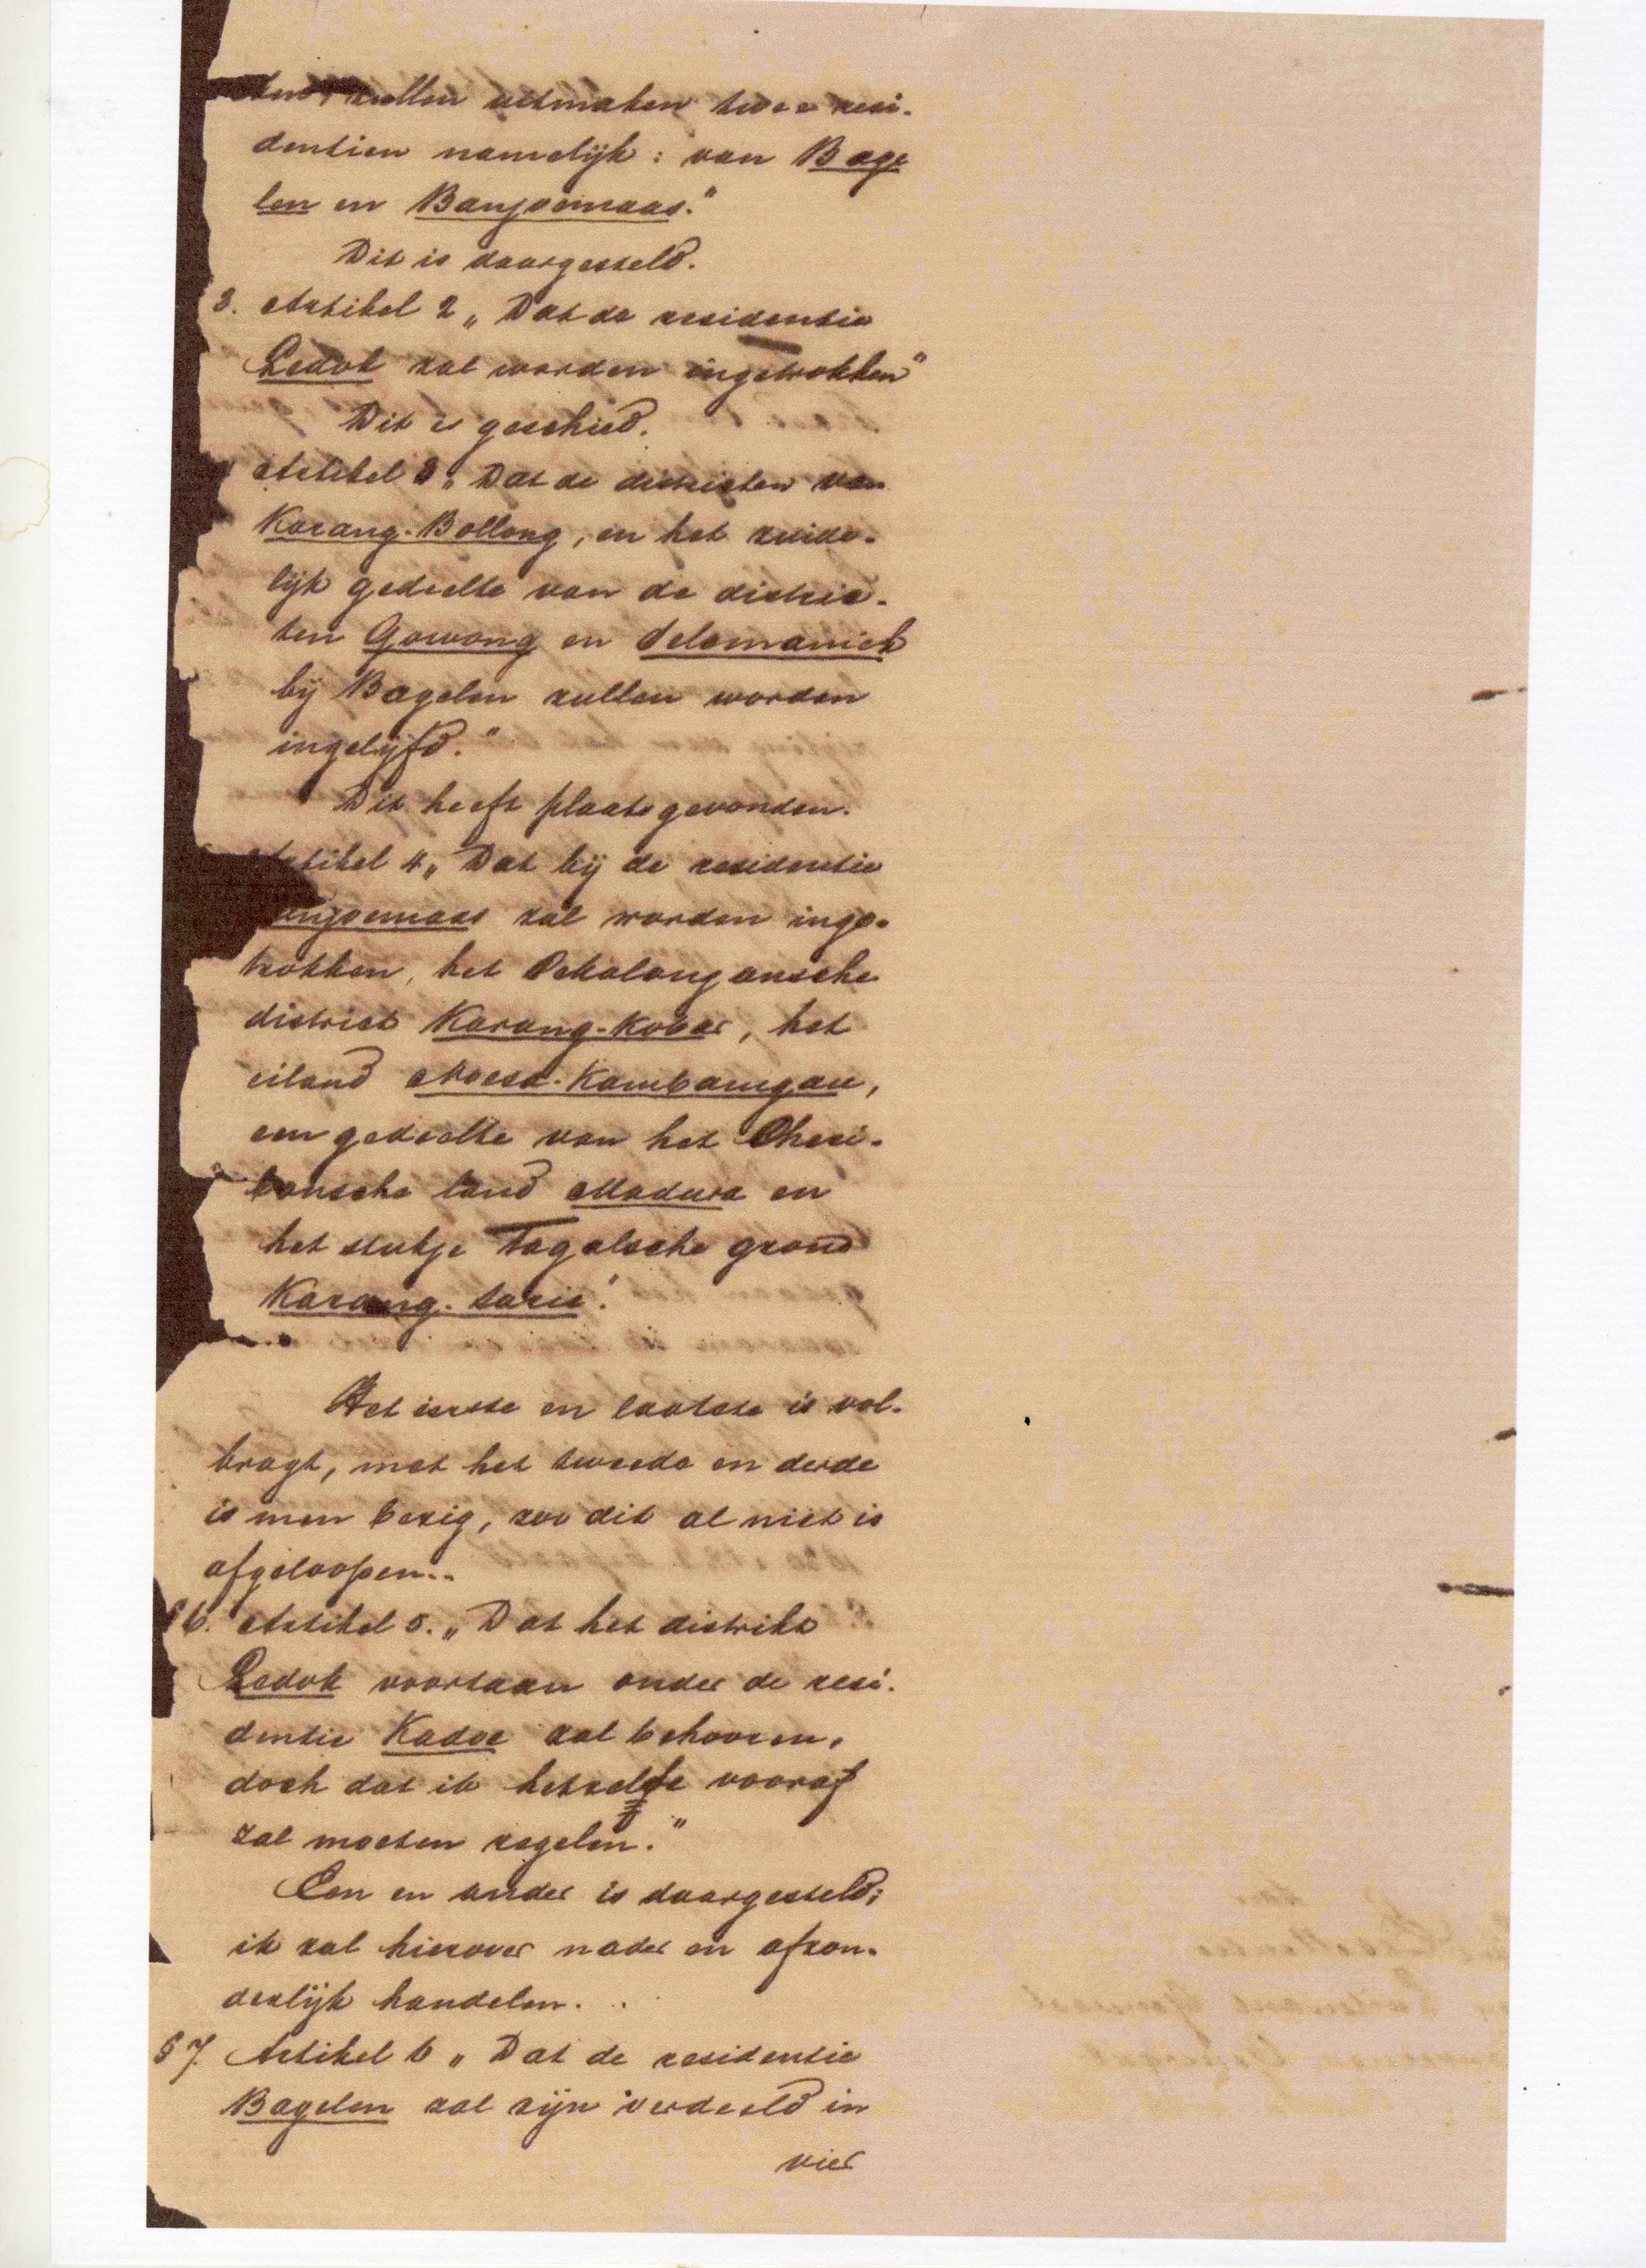 zullen uitmaken twee resi-
dentien namelijk: van Bage
len en Banjoemaas."
Dit is daargesteld.
3. Artikel 2 „Dat de residentie
Ledok zal worden ingetrokken"
Dit is geschied.
Artikel 3 „Dat de districten van
Karang-Bollong, en het zuide-
lijk gedeelte van de distric-
ten Gowong en Selomanick
bij Bagelen zullen worden
ingelijfd."
Dit heeft plaats gevonden.
Artikel 4 „Dat bij de residentie
anjoemaas zal worden inge-
trokken, het Pekalongansche
district Karang-Kobar, het
eiland Noesa-Kambangan,
een gedeelte van het Cheri-
bonsche land Madura en
het stukje Tagalsche grond
Karang-sarie."
Het eerste en laatste is vol-
bragt, met het tweede en derde
is men bezig, zoo dit al niet is
afgeloopen..
§ 6. Artikel 5. „Dat het distrikt
Ledok voortaan onder de resi-
dentie Kadoe zal behooren,
doch dat ik hetzelfe vooraf
zal moeten regelen."
Een en ander is daargesteld;
ik zal hierover nader en afzon-
derlijk handelen.
§ 7. Artikel 6 „Dat de residentie
Bagelen zal zijn verdeeld in
vier